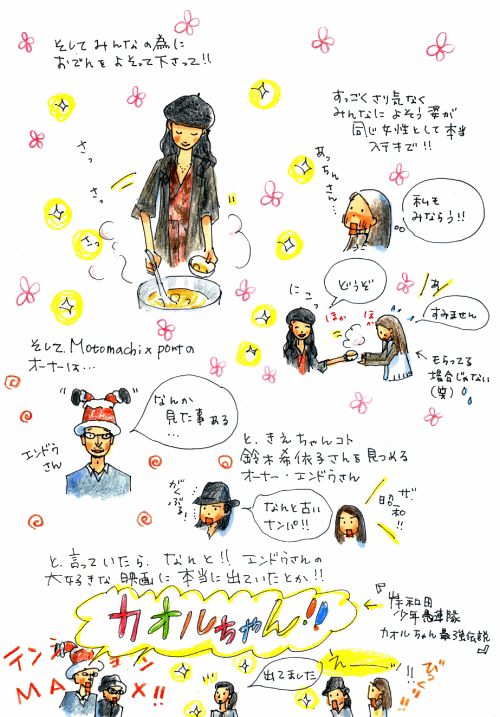 そして みんなの為に
おでんを よそって下さって!!
すっごく さり気なく
みんなに よそう 姿が
同じ女性として 本当
ステキで!!
さっ
さっ
さっ
あっちゃんさん…
私も
みならう!!
にこっ
どうぞ
ほか
ほか
あ
すみません
もらってる
場合じゃない
(笑)
そして、Motomachi x pontの
オーナーは…
エンドウ
さん
なんか
見た事ある
…
と、きえちゃんコト
鈴木希依子さんを見つめる
オーナー・エンドウさん
がくぶる!
なんと古い
ナンパ!!
ザ・
昭和
!!
と、言っていたら、なんと!! エンドウさんの
大好きな 映画に 本当に 出ていたとか!!
カオルちゃん!!
『岸和田
少年愚連隊
カオルちゃん最強伝説』
テンション
MAX!!
出てました
えーっ!!
びっくり